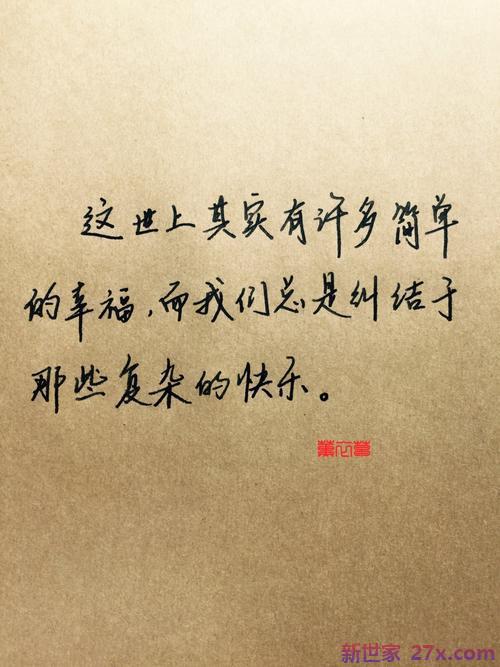 这世上其实有许多简单
的幸福，而我们总是纠结于
那些复杂的快乐。
新世家 27x.com